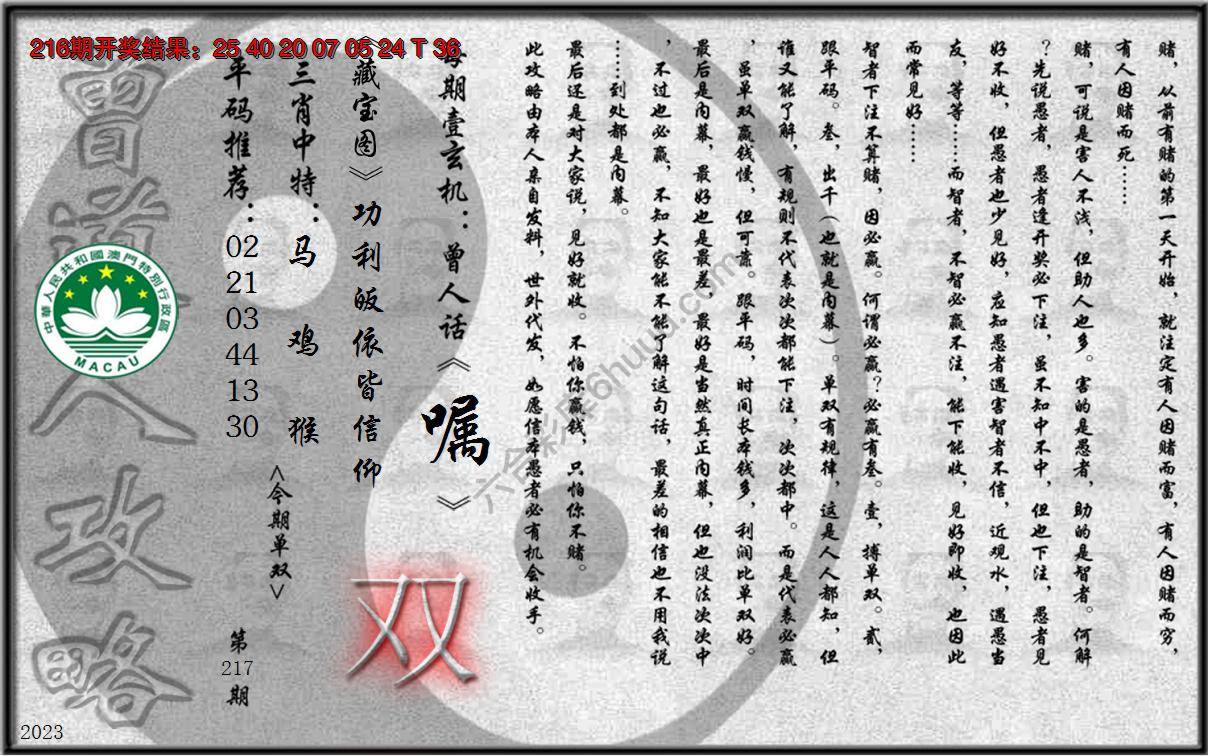 216期开奖结果：25 40 20 07 05 24 T 36
赌，从前有赌的第一天开始，就注定有人因赌而富，有人因赌而穷，
有人因赌而死……
赌，可说是害人不浅，但助人也多。害的是愚者，助的是智者。何解
？先说愚者，愚者逢开奖必下注，虽不知中不中，但也下注，愚者见
好不收，但愚者也少见好，应知愚者遇害智者不信，近观水，遇愚当
友，等等……而智者，不智必赢不注，能下能收，见好即收，也因此
而常见好……
智者下注不算赌，因必赢。何谓必赢？必赢有叁。壹，搏单双。贰，
跟平码。叁，出千（也就是内幕）。单双有规律，这是人人都知，但
谁又能了解，有规则不代表次次都能下注，次次都中。而是代表必赢
，虽单双赢钱慢，但可靠。跟平码，时间长本钱多，利润比单双好。
最后是内幕，最好也是最差，最好是当然真正内幕，但也没法次次中
，不过也必赢，不知大家能不能了解这句话，最差的相信也不用我说
……到处都是内幕。
最后还是对大家说，见好就收。不怕你赢钱，只怕你不赌。
此攻略由本人亲自发料，世外代发，如愿信本愚者必有机会收手。
每期壹玄机：曾人话《嘱》
《藏宝图》功利皈依皆信仰
三肖中特：马 鸡 猴
平码推荐：02 21 03 44 13 30
<今期单双>
双
第217期
曾道人攻略
中華人民共和國澳門特別行政區
MACAU
六合彩库6huuu.com
2023